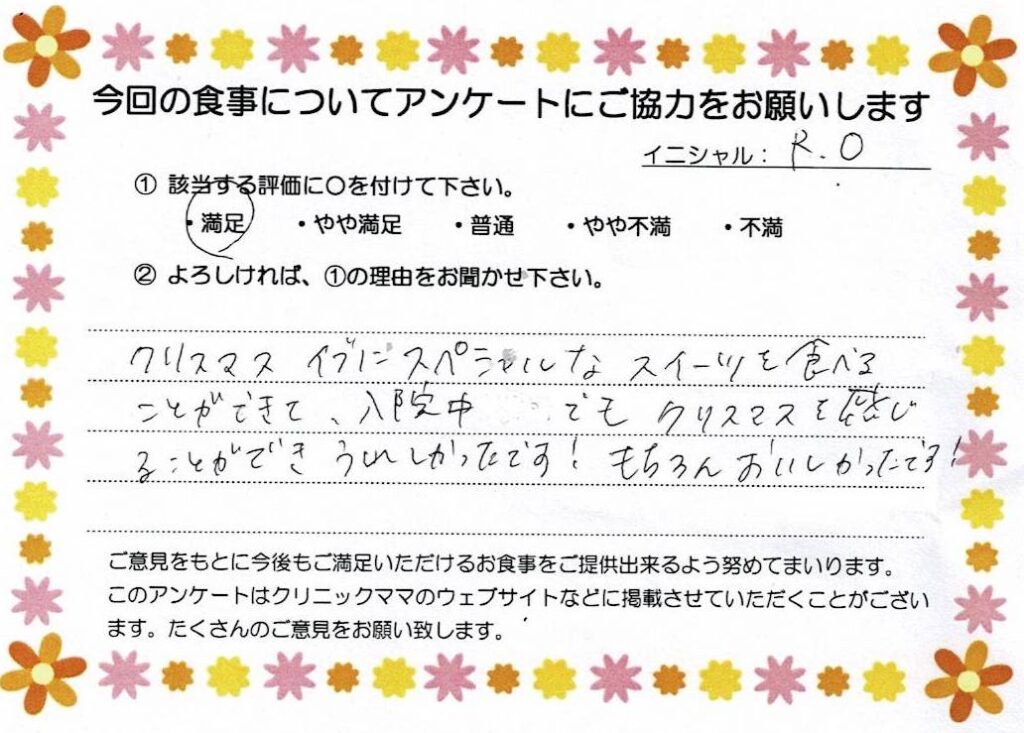 今回の食事についてアンケートにご協力をお願いします
イニシャル： R.O
① 該当する評価に〇を付けて下さい。
・満足 ・やや満足 ・普通 ・やや不満 ・不満
② よろしければ、①の理由をお聞かせ下さい。
クリスマス イブにスペシャルな スイーツを食べる
ことができて、入院中 でも クリスマスを感じ
ることができ うれしかったです! もちろん おいしかったです!
ご意見をもとに今後もご満足いただけるお食事をご提供出来るよう努めてまいります。
このアンケートはクリニックママのウェブサイトなどに掲載させていただくことがござい
ます。たくさんのご意見をお願い致します。